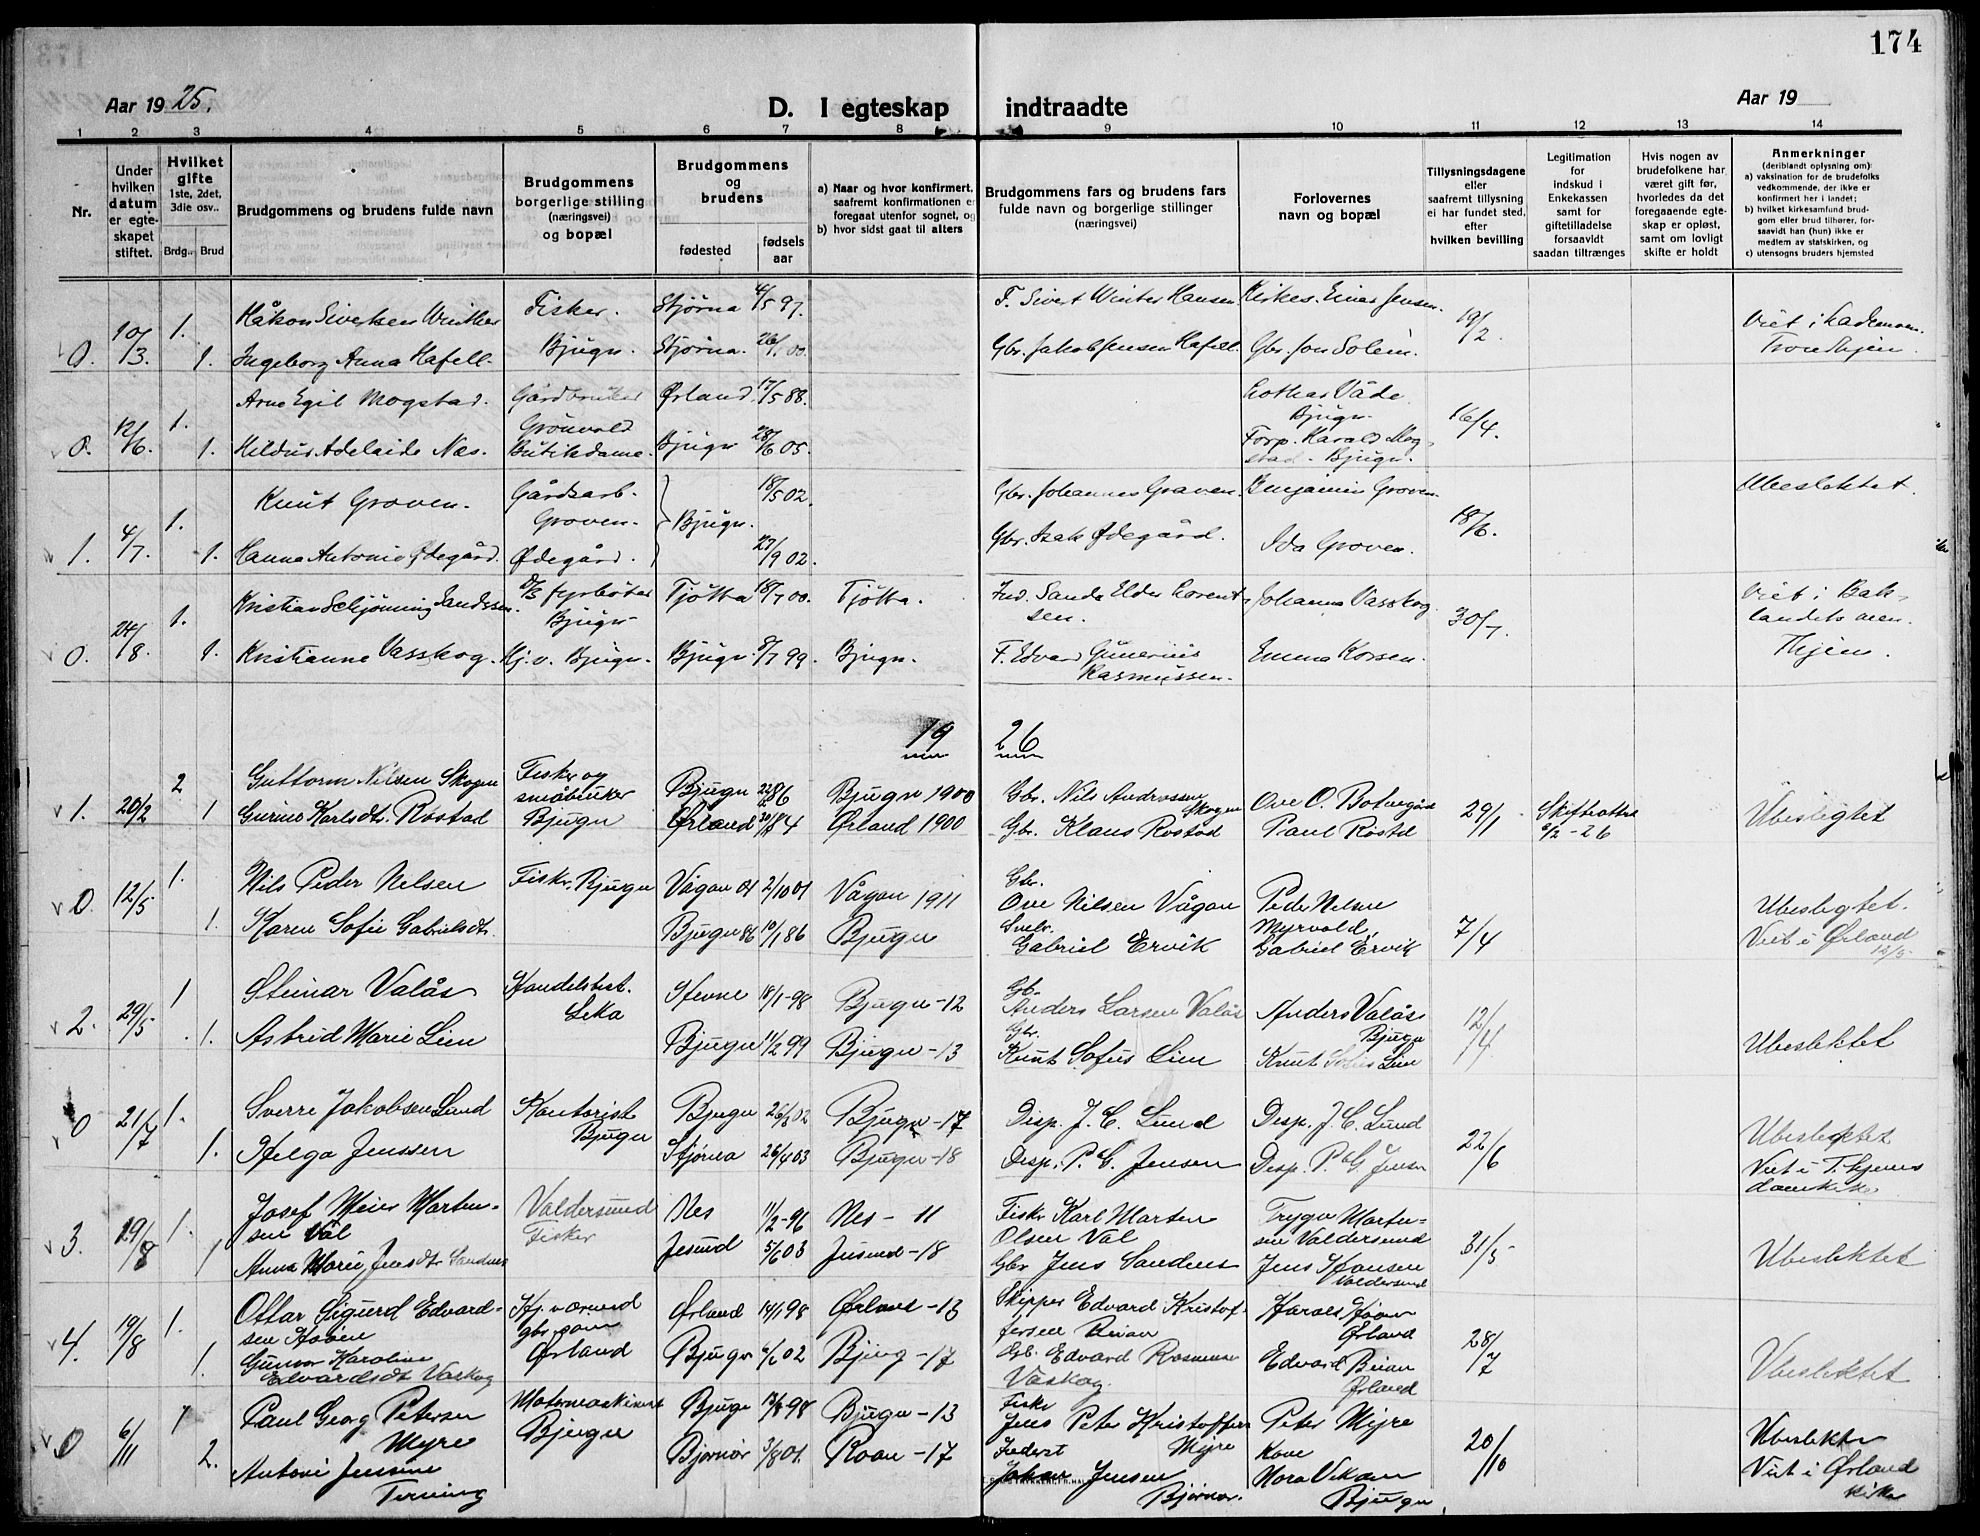 174
Aar 1925.
D. I egteskap indtraadte
Aar 19
1 2 3 4 5 6 7 8 9 10 11 12 13 14
Nr.
Under hvilken datum er egteskapet stiftet.
Hvilket gifte
1ste, 2det, 3die osv..
Brdg.. Brud
Brudgommens og brudens fulde navn
Brudgommens borgerlige stilling
(næringsvei)
og bopæl
Brudgommens og brudens
fødested
fødsels aar
a) Naar og hvor konfirmert,
saafremt konfirmationen er
foregaat utenfor sognet, og
b) hvor sidst gaat til alters
Brudgommens fars og brudens fars
fulde navn og borgerlige stillinger
(næringsvei)
Forlovernes
navn og bopæl
Tillysningsdagene
eller
saafremt tillysning
ei har fundet sted,
efter
hvilken bevilling
Legitimation
for
indskud i
Enkekassen
samt for
giftetilladelse
forsaavidt
saadan tiltrænges
Hvis nogen av
brudefolkene har
været gift før,
hvorledes da det
foregaaende egte-
skap er opløst,
samt om lovligt
skifte er holdt
Anmerkninger
(deriblandt oplysning om)
a) vaksination for de brudefolks
vedkommende, der ikke er
konfirmert her i landet;
b) hvilket kirkesamfund brud-
gom eller brud tilhører, for-
saavidt han (hun) ikke er
medlem av statskirken, og
c) utensogns bruders hjemsted
0. 10/3. 1. Håkon Sivertsen Winther Fisker. Stjørna 4/5 97. F. Sivert Winter Hansen Kirkes. Einar Jensen. 19/2. Viet i Lademoen.
1. Ingeborg Anna Hafell. Bjugn. Stjørna. 26/1 00. Gbr. Jakob Jensen Hafell. Gbr. Jon Solem. Trondhjem.
0. 12/6. 1. Arne Egil Mogstad. Gårdbruker Ørland. 17/5 88. Lothar Våde Bjugn. 16/4.
1. Hildur Adelaide Næs. Grønvold Butikdame. Bjugn 28/6 05. Forp. Harald Mogstad. Bjugn.
1. 4/7. 1. Knut Groven. Gårdsarb. Groven. Bjugn. 18/5 02. Gbr. Johannes Graven. Benjamin Groven. 18/6. Ubeslektet.
1. Hanna Antonie Ødegård. Ødegård. 27/9 02. Gbr. Isak Ødegård. Ida Groven.
0. 24/8. 1. Kristian Schjønning Sandssen. D/S fyrbøter Bjugn Tjøtta 18/7 00. Tjøtta. Ind. Sande Elder Lorentsen. Johanna Vasskog. 30/7. Viet i Baklandets
1. Kristianne Vasskog. Hj. v. Bjugn. Bjugn. 8/7 99. Bjugn. F. Edvard Gunerius Rasmussen. Emma Korsen. Thjem.
19 26
1. 20/2 2 Guttorm Nilsen Skogen Fisker og småbruker Bjugn 22/ 86 Bjugn 1900 Gbr. Nils Andreassen Skogen Ove O. Botnegård 29/1 Skifteattest 6/2 - 26 Ubesligtet
1 Gurine Karlsdtr. Rostad Bjugn Ørland 30/ 84 Ørland 1900 Gbr. Klaus Rostad Paul Rostad
0. 12/5 1. Nils Peder Nelsen Fisker, Bjugn Vågan 01 2/10 01 Vågan 1911 Gbr. Ove Nilsen Vågan Peder Nelsen Myrvold, 7/4 Ubesligtet.
1. Karen Sofie Gabrielsdtr. Bjugn 86 10/1 86 Bjugn Gabriel Ervik Gabriel Ervik Viet i Ørland 12/5
2. 29/5 1 Steinar Valås Handelsbest. Leka Hevne 18/1-98 Bjugn - 12 Gb. Anders Larsen Valås Anders Valås Bjugn 12/4 Ubeslektet
1. Astrid Marie Lien Bjugn 11/2 99 Bjugn - 13 Gbr. Knut Sofus Lien Knut Sofus Lien
0 21/7 1. Sverre Jakobsen Lund Kontorist Bjugn Bjugn 26/ 02 Bjugn - 17 Disp. J. C. Lund Disp. J. C. Lund 22/6 Ubeslektet
1. Helga Jenssen Stjørna 26/4 03 Bjugn - 18 Disp. P. G. Jensen Disp. P. G. Jensen Viet i T.hjems domkirke
3. 19/8 1. Josef Meier Martensen Val Valdersund Fisker Nes 11/2-96 Nes - 11 Fisker Karl Marten Olsen Val Trygve Martensen Valdersund 31/5 Ubeslektet
1 Anna Marie Jensdtr. Sandnes Jøsund 5/6 03 Jøsund - 18 Gbr Jens Sandnes Jens Hansen Valdersund
4. 19/8 1. Ottar Sigurd Edvardsen Hovin Ørland 14/1 98 Ørland - 13 Skipper Edvard Kristoffersen Beian Harald Ørland 28/7 Ubeslektet
1. Gunvor Karoline Edvardsdt. Vaskog Ørland Bjugn 02 Bjugn - 17 Gb. Edvard Rasmussen Vaskog. Edvard Beian Ørland
0 6/11 1 Paul Georg Petersen Myre Motormaskinist Bjugn Bjugn 98 Bjugn - 13 Fisker Jens Peter Kristoffersen Myre Peter Myre 20/10 Ubeslektet
2. Antoni Jensine Terning Bjørnør 3/8 01. Roan - 17 Inderst Johan Jensen Bjørnør. Kone Nora Vikan Bjugn Viet i Ørland kirke